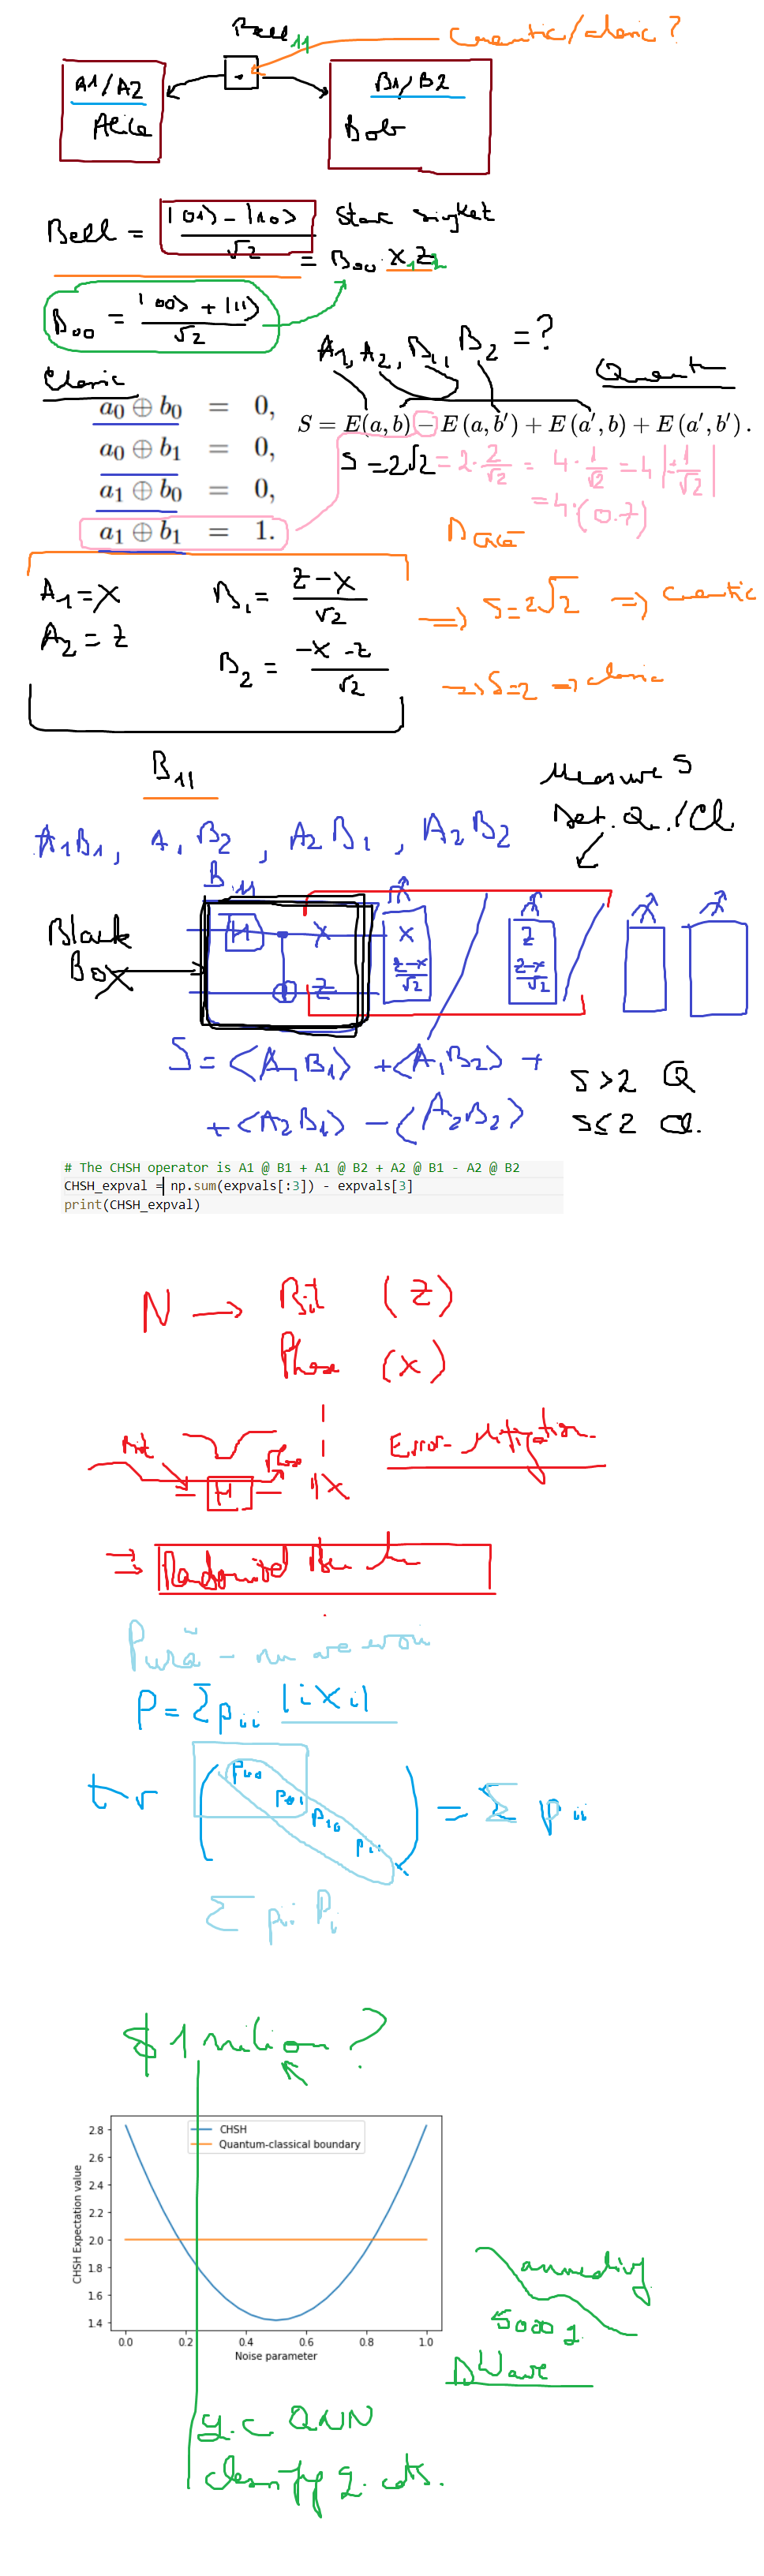 Bell11
Cuantic/clasic?
A1/A2
B1/B2
Alice
Bob
Bell = |01⟩ - |10⟩ / √2
Stare singlet
= B00 X1 Z2
B00 = |00⟩ + |11⟩ / √2
A1, A2, B1, B2 = ?
Clasic
Quant
a0 ⊕ b0 = 0,
S = E(a, b) − E(a, b′) + E(a′, b) + E(a′, b′).
a0 ⊕ b1 = 0,
S = 2√2 = 2 · 2/√2 = 4 · 1/√2 = 4 |-1/√2|
a1 ⊕ b0 = 0,
= 4 · (0.7)
a1 ⊕ b1 = 1.
Dacă
A1 = X
B1 = Z-X / √2
⟹ S = 2√2 ⟹ cuantic
A2 = Z
B2 = -X-Z / √2
⟹ S=2 ⟹ clasic
B11
Measure S
A1B1, A1B2, A2B1, A2B2
Det. Q./Cl.
B11
Black
Box
H
X
Z
X
Z-X / √2
Z
Z-X / √2
S = ⟨A1B1⟩ + ⟨A1B2⟩ +
+ ⟨A2B1⟩ - ⟨A2B2⟩
S>2 Q
S≤2 Cl.
# The CHSH operator is A1 @ B1 + A1 @ B2 + A2 @ B1 - A2 @ B2
CHSH_expval = np.sum(expvals[:3]) - expvals[3]
print(CHSH_expval)
N → Bit (Z)
Phase (X)
H
X
Error-Mitigation
⇒
Pură - nu are erori
P = Σ pii |i⟩⟨i|
tr ( p00 p01 p10 p11 ) = Σ pii
Σ pii Pi
$ 1 milion?
CHSH
Quantum-classical boundary
CHSH Expectation value
2.8
2.6
2.4
2.2
2.0
1.8
1.6
1.4
0.0 0.2 0.4 0.6 0.8 1.0
Noise parameter
annealing
5000 q
DWave
q.c QNN
classify q. cats.